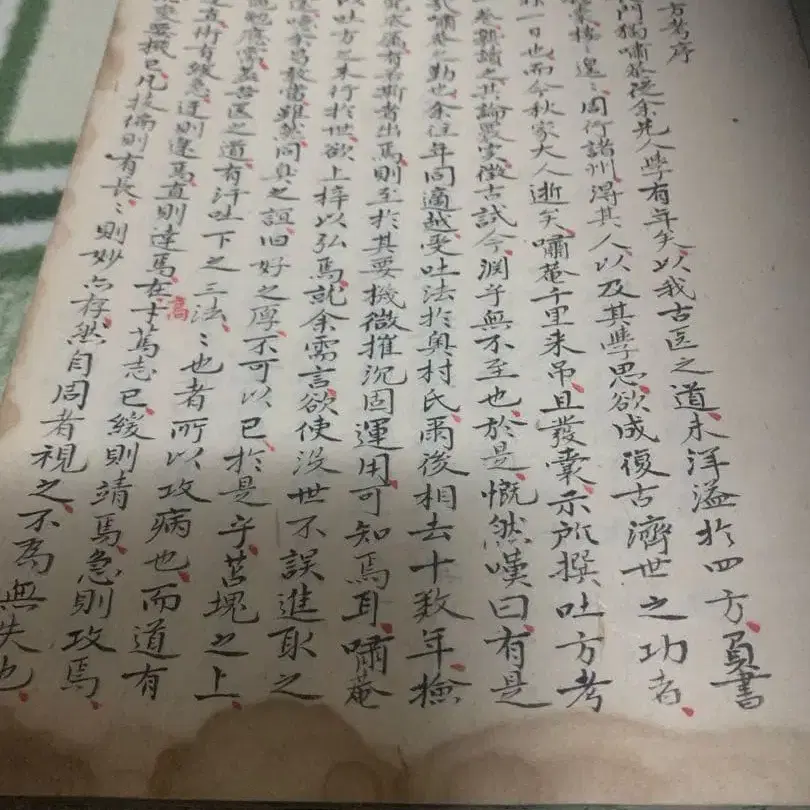 方考序
門獨嘯菴從余先人學有年矣以我古医之道未洋溢於四方、負書
橐、遑〻周行諸州、得其人以及其學思欲成復古濟世之功者、
一日也而今秋家大人逝矣、嘯菴千里来吊、且發囊示所撰吐方考
卷雜讀之其論覈实徵古試今、渊乎無不至也、於是慨然嘆曰有是
嘯菴之勤也、余往年同適越受吐法於奥村氏、爾後相去十数年、撿
有若斯者出焉、則至於其要機微摧沉固運用可知焉耳、嘯菴
以吐方之未行於世、欲上梓以弘焉、就余需言欲使没世不誤進取之
余曷敢當雖然同臭之誼旧好之厚不可以已、於是乎苫塊之上、
應需盖吾医之道有汗吐下之三法、〻也者所以攻病也、而道有
五術有緩急、迂則違焉直則達焉、在才高篤志已、緩則靖焉、急則攻焉、
要機已、凡技倆則有長、〻則妙亦存然自周者視之、不為無失也、